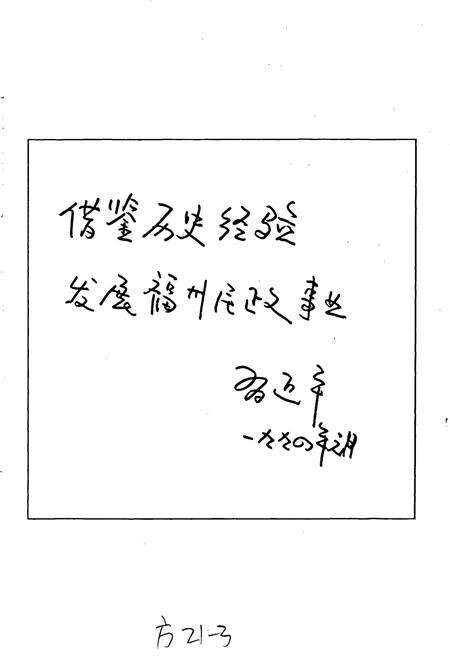 借鉴历史经验
发展福州民政事业
习近平
一九九〇年元月
方21-3